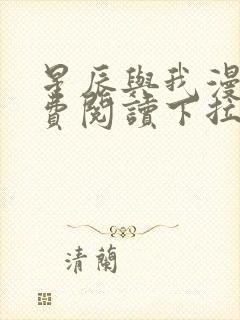 星辰與我漫
費閱讀下拉
清蘭